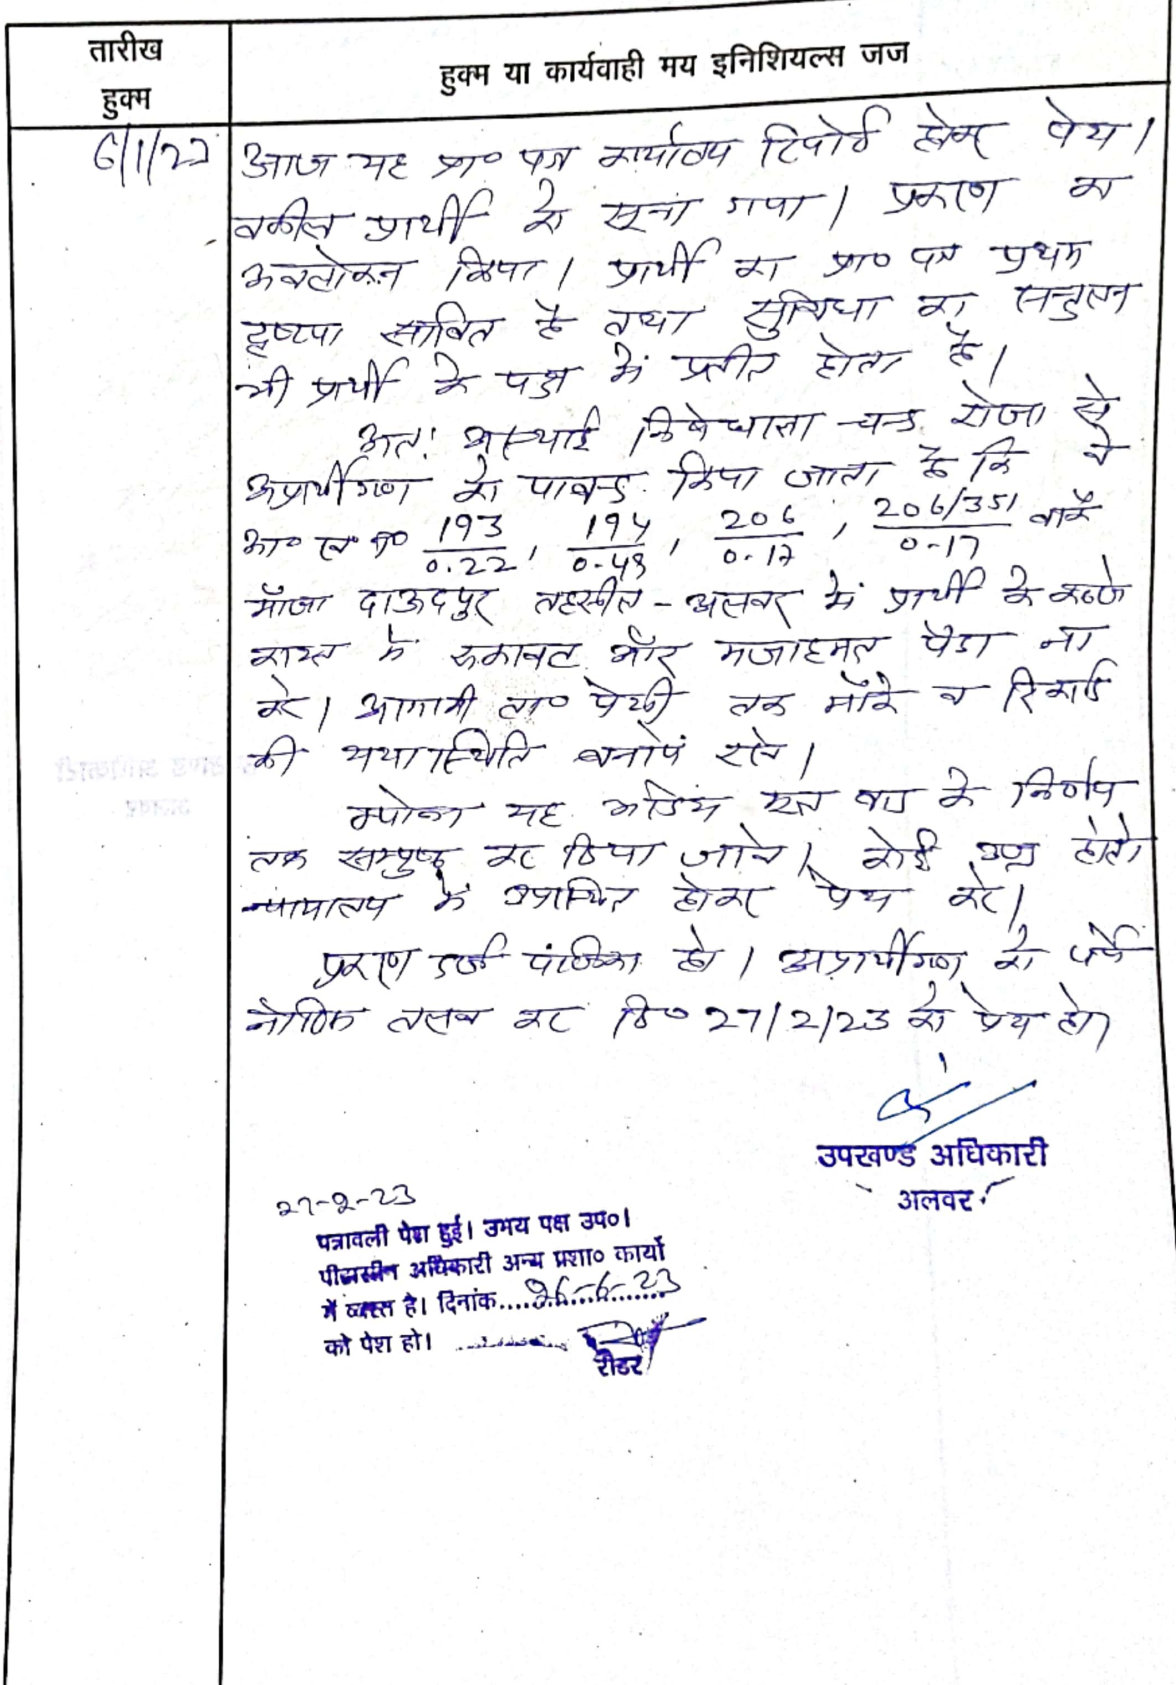 तारीख
हुक्म
हुक्म या कार्यवाही मय इनिशियल्स जज
6/1/23
आज यह प्रा० पत्र कार्यालय रिपोर्ट होकर पेश।
वकील प्रार्थी को सुना गया। प्रकरण का
अवलोकन किया। प्रार्थी का प्रा० पत्र प्रथम
दृष्टया साबित है तथा सुविधा का सन्तुलन
भी प्रार्थी के पक्ष में प्रतीत होता है।
अतः अस्थाई निषेधाज्ञा चन्द रोजा से
अप्रार्थीगण को पाबन्द किया जाता है कि वे
आ० ख० न० 193/0.22, 194/0.48, 206/0.17, 206/351/0.17 वाकै
मौजा दाऊदपुर तहसील - अलवर में प्रार्थी के कब्जे
काश्त में रुकावट और मजाहमत पैदा ना
करे। आगामी ता० पेशी तक मौके व रिकार्ड
की यथास्थिति बनाये रखे।
यह के निर्णय
तक कर दिया जावे। कोई उज्र हो तो
न्यायालय में उपस्थित होकर पेश करे।
प्रकरण दर्ज पंजिका हो। अप्रार्थीगण को जर्ये
नोटिस तलब कर दि० 27/2/23 को पेश हो।
उपखण्ड अधिकारी
अलवर
27-2-23
पत्रावली पेश हुई। उभय पक्ष उप०।
पीठासीन अधिकारी अन्य प्रशा० कार्यो
में व्यस्त है। दिनांक....26-6-23
को पेश हो।
रीडर